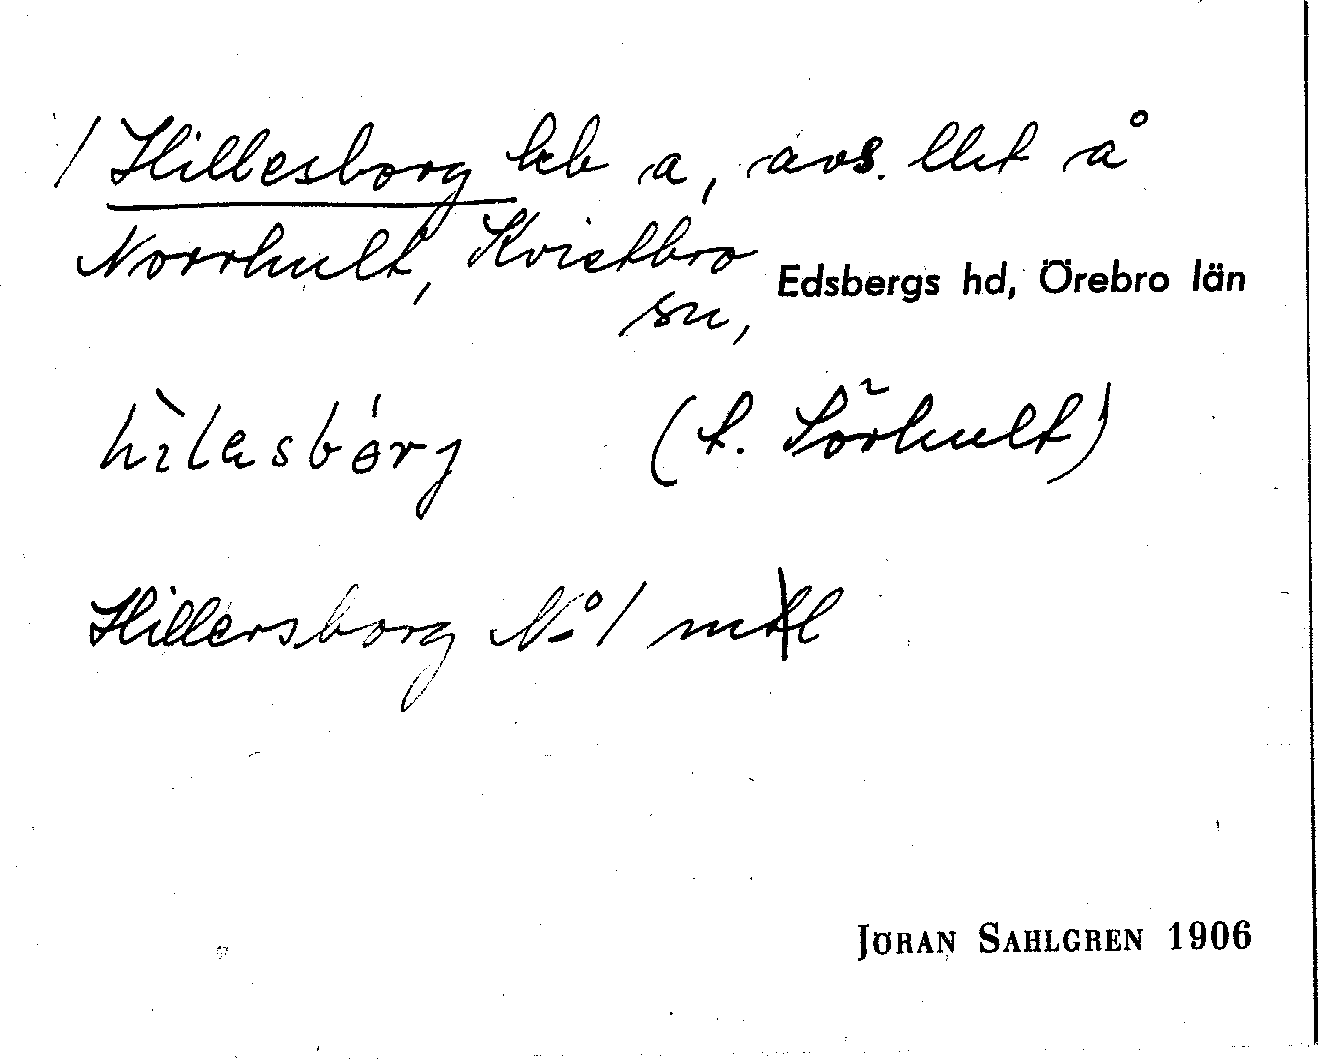 / Hillesborg lzb a, avs. llt å
Norrhult, Kvistbro
sn, Edsbergs hd, Örebro län
hìlesbórj (t. Sörhult)
Hillersborg No 1 mtl
JÖRAN SAHLGREN 1906